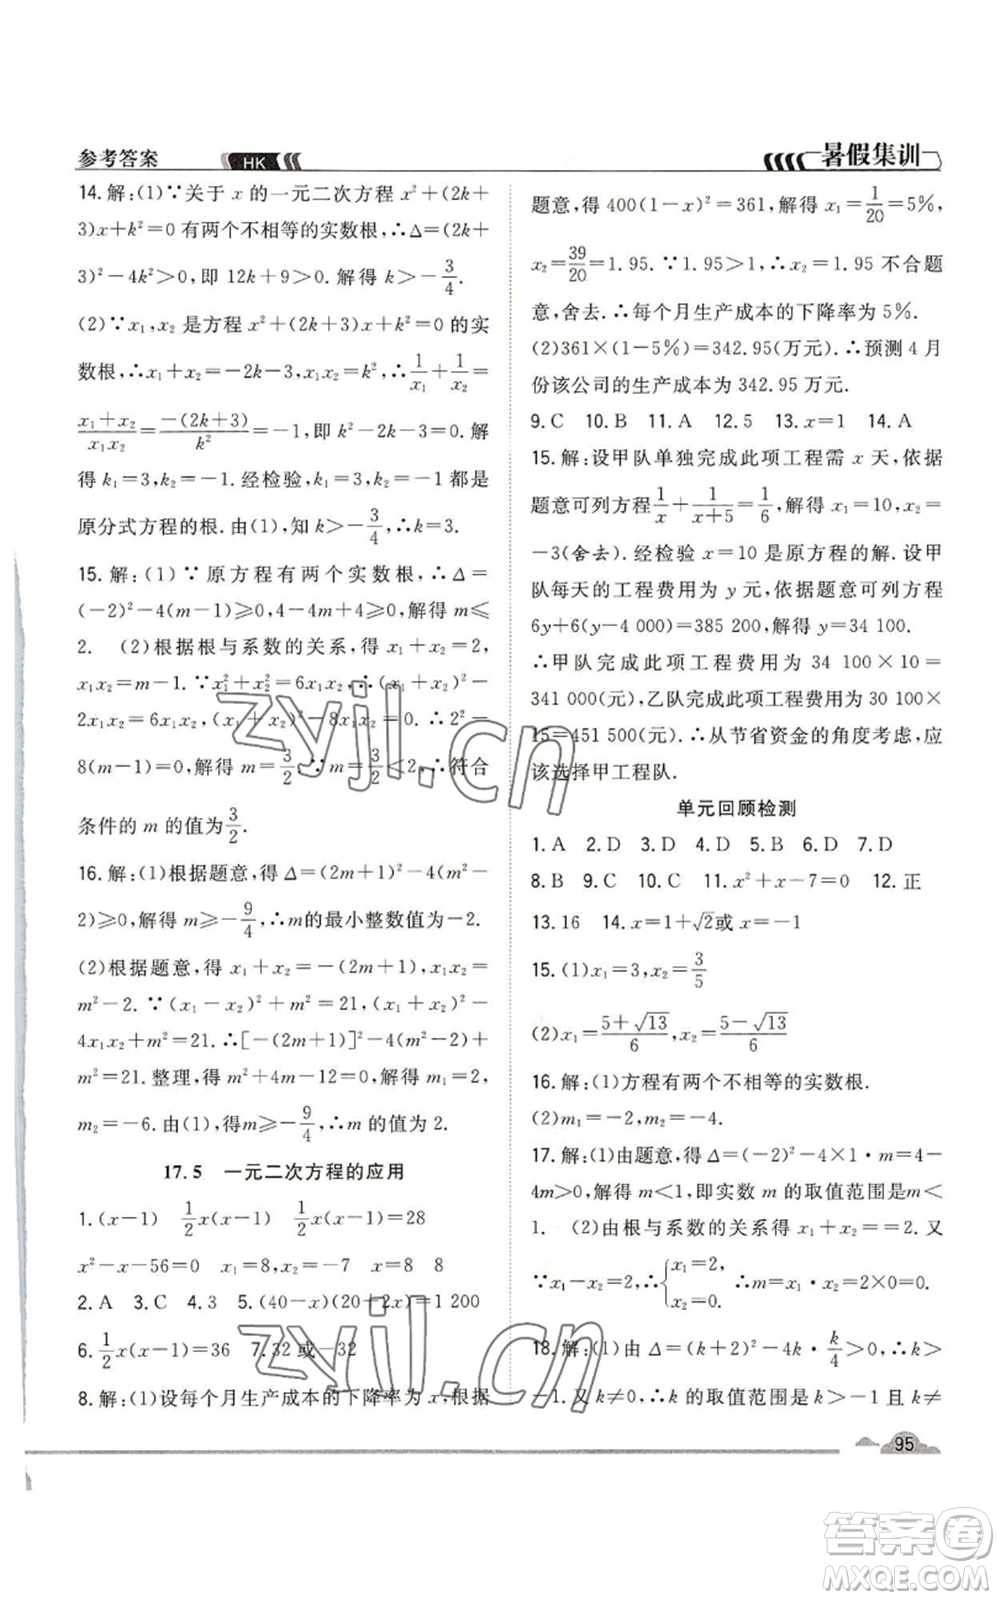 参考答案 HK 暑假集训
14.解:(1)∵关于 x 的一元二次方程 x²+(2k+
3)x+k²=0 有两个不相等的实数根,∴Δ=(2k+
3)²-4k²>0,即 12k+9>0.解得 k>-3/4.
(2)∵x₁,x₂ 是方程 x²+(2k+3)x+k²=0 的实
数根,∴x₁+x₂=-2k-3,x₁x₂=k²,∴1/x₁+1/x₂=
(x₁+x₂)/(x₁x₂)=-(2k+3)/k²=-1,即 k²-2k-3=0.解
得 k₁=3,k₂=-1.经检验,k₁=3,k₂=-1 都是
原分式方程的根.由(1),知 k>-3/4,∴k=3.
15.解:(1)∵原方程有两个实数根,∴Δ=
(-2)²-4(m-1)≥0,4-4m+4≥0,解得 m≤
2. (2)根据根与系数的关系,得 x₁+x₂=2,
x₁x₂=m-1.∵x₁²+x₂²=6x₁x₂,∴(x₁+x₂)²-
2x₁x₂=6x₁x₂,(x₁+x₂)²-8x₁x₂=0.∴2²-
8(m-1)=0.∴m=3/2.∵m=3/2<2.∴符合
条件的 m 的值为3/2.
16.解:(1)根据题意,得 Δ=(2m+1)²-4(m²-
2)≥0,解得 m≥-9/4,∴m的最小整数值为-2.
(2)根据题意,得 x₁+x₂=-(2m+1),x₁x₂=
m²-2.∵(x₁-x₂)²+m²=21,(x₁+x₂)²-
4x₁x₂+m²=21.∴[-(2m+1)]²-4(m²-2)+
m²=21.整理,得 m²+4m-12=0,解得 m₁=2,
m₂=-6.由(1),得m≥-9/4,∴m 的值为 2.
17.5 一元二次方程的应用
1.(x-1) 1/2x(x-1) 1/2x(x-1)=28
x²-x-56=0 x₁=8,x₂=-7 x=8 8
2.A 3.C 4.3 5.(40-x)(20+2x)=1 200
6.1/2x(x-1)=36 7.32 或-32
8.解:(1)设每个月生产成本的下降率为 x,根据
题意,得 400(1-x)²=361,解得 x₁=1/20=5%,
x₂=39/20=1.95.∵1.95>1,∴x₂=1.95 不合题
意,舍去.∴每个月生产成本的下降率为5%.
(2)361×(1-5%)=342.95(万元).∴预测 4 月
份该公司的生产成本为 342.95 万元.
9.C 10.B 11.A 12.5 13.x=1 14.A
15.解:设甲队单独完成此项工程需 x 天,依据
题意可列方程1/x+1/(x+5)=1/6,解得 x₁=10,x₂=
-3(舍去).经检验 x=10 是原方程的解.设甲
队每天的工程费用为 y 元,依据题意可列方程
6y+6(y-4 000)=385 200,解得 y=34 100.
∴甲队完成此项工程费用为 34 100×10=
341 000(元),乙队完成此项工程费用为 30 100×
15=451 500(元).∴从节省资金的角度考虑,应
该选择甲工程队.
单元回顾检测
1.A 2.D 3.D 4.D 5.B 6.D 7.D
8.B 9.C 10.C 11.x²+x-7=0 12.正
13.16 14.x=1+√2或 x=-1
15.(1)x₁=3,x₂=3/5
(2)x₁=(5+√13)/6,x₂=(5-√13)/6
16.解:(1)方程有两个不相等的实数根.
(2)m₁=-2,m₂=-4.
17.解:(1)由题意,得 Δ=(-2)²-4×1·m=4-
4m>0,解得 m<1,即实数 m 的取值范围是m<
1. (2)由根与系数的关系得 x₁+x₂=2.又
∵x₁-x₂=2,∴{x₁=2, x₂=0. ∴m=x₁x₂=2×0=0.
18.解:(1)由 Δ=(k+2)²-4k·k/4>0,∴k>
-1.又∵k≠0,∴k 的取值范围是 k>-1 且 k≠
95
zyjl.cn
zyjl.cn
答案圈
MXQE.COM